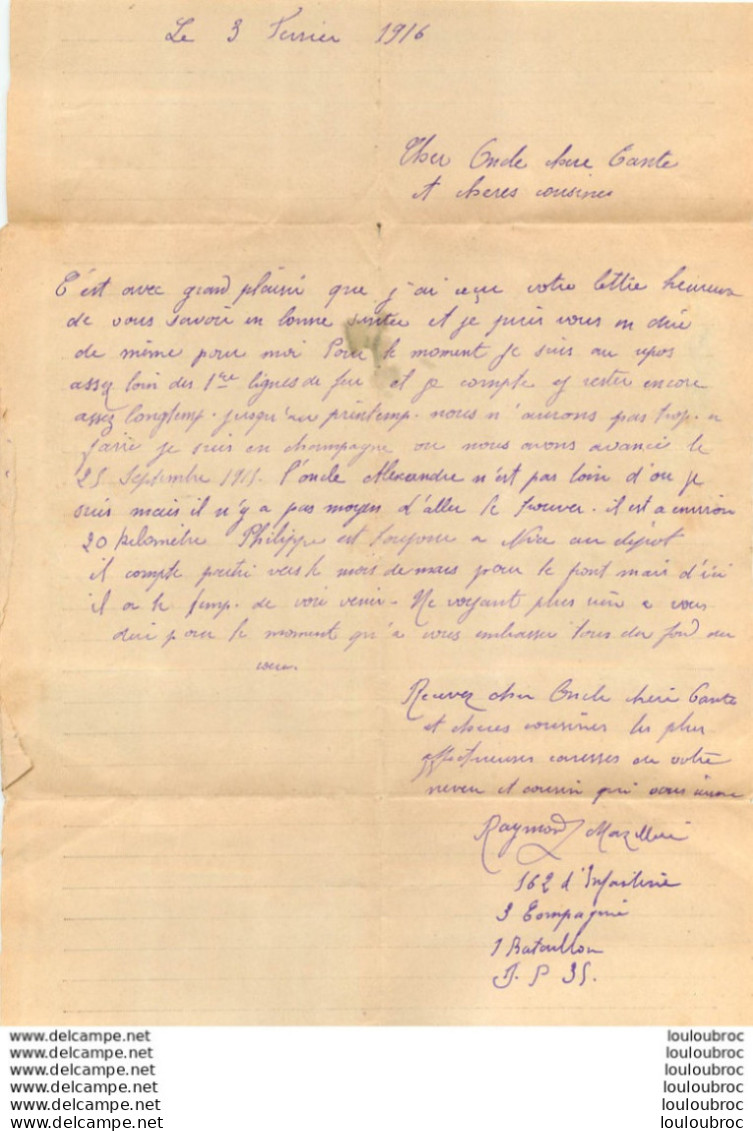 Le 3 Fevrier 1916
Cher Oncle chere Tante
et cheres cousines
C'est avec grand plaisir que j'ai reçu votre lettre heureux
de vous savoir en bonne santée et je puis vous en dire
de même pour moi Pour le moment je suis au repos
assez loin des 1re lignes de feu et je compte y rester encore
assez longtemp. jusqu'au printemp. nous n'aurons pas trop a
faire je suis en champagne ou nous avons avancé le
25 Septembre 1915. l'oncle Alexandre n'est pas loin d'ou je
suis mais il n'y a pas moyen d'aller le trouver. il est a environ
20 kilomètre Philippe est toujour a Nice au dépot
il compte partir vers le mois de mars pour le front mais d'ici
il a le temp. de voir venir. Ne voyant plus rien a vous
dire pour le moment qu'a vous embrasser tous du fond du
coeur
Recevez cher Oncle chère Tante
et cheres cousines les plus
affectueuses caresses de votre
neveu et cousin qui vous aime
Raymond
162 d'Infanterie
3 Compagnie
1 Bataillon
S. P 35.
www.delcampe.net
www.delcampe.net
www.delcampe.net
www.delcampe.net
www.delcampe.net
www.delcampe.net
louloubroc
louloubroc
louloubroc
louloubroc
louloubroc
louloubroc